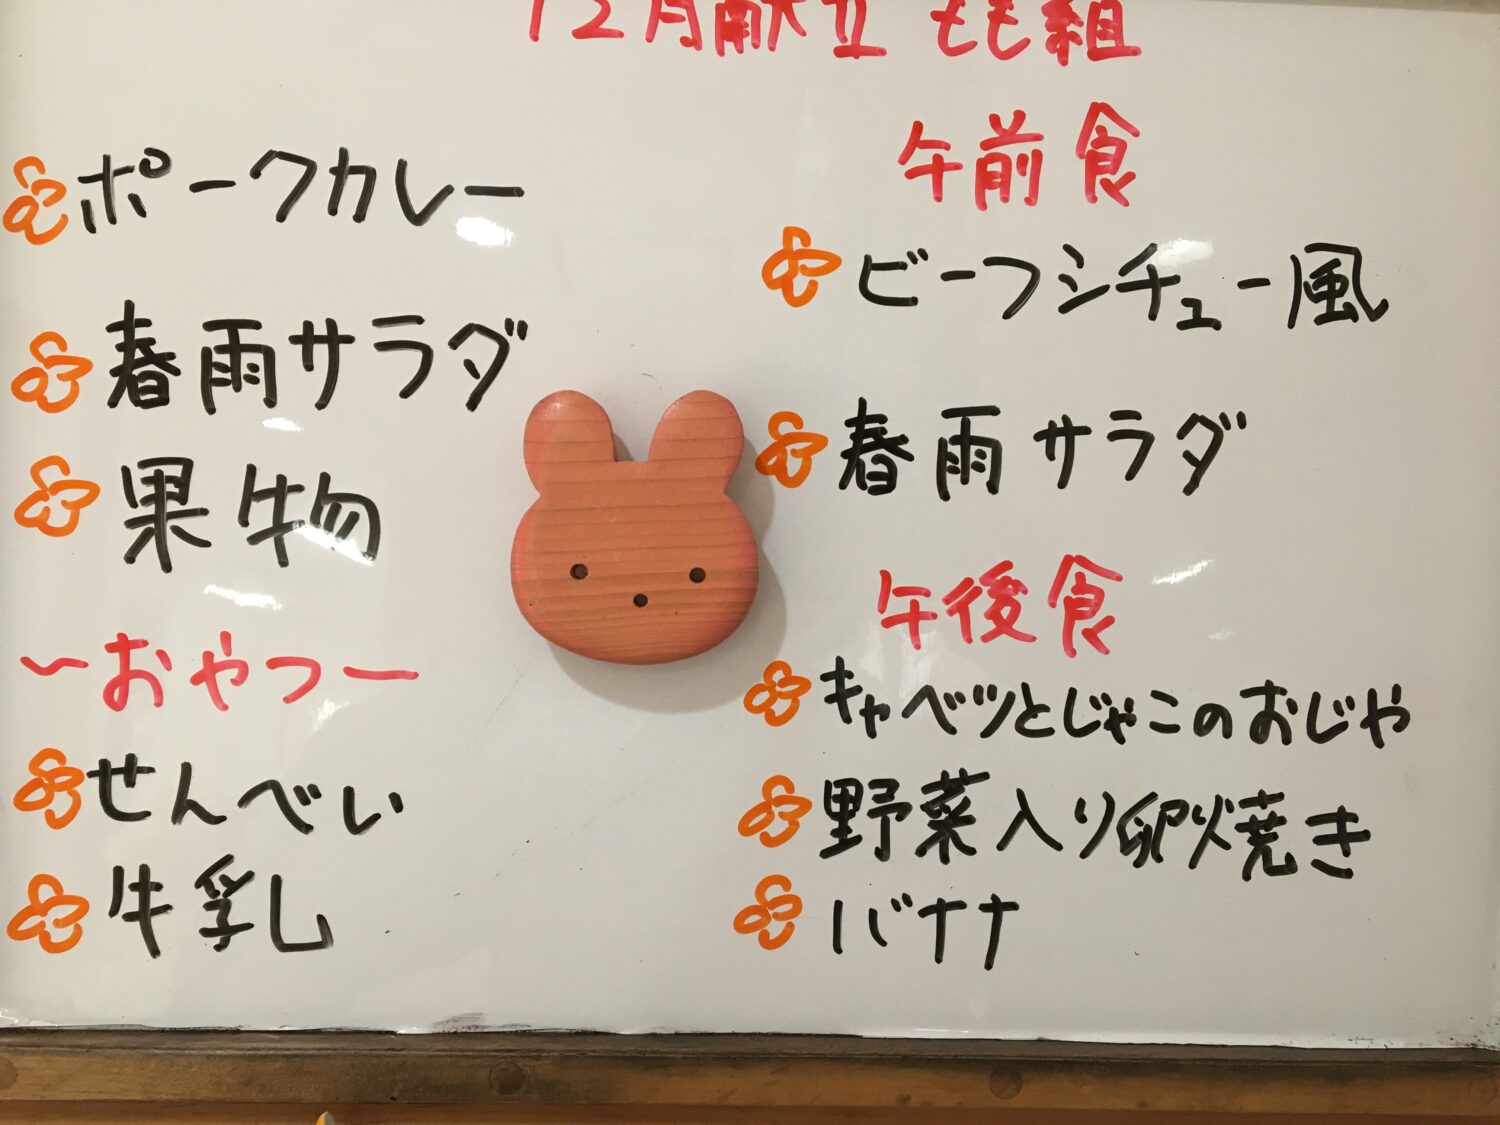 12月献立 もも組
ポークカレー
春雨サラダ
果物
〜おやつー
せんべい
牛乳
午前食
ビーフシチュー風
春雨サラダ
午後食
キャベツとじゃこのおじや
野菜入り卵焼き
バナナ